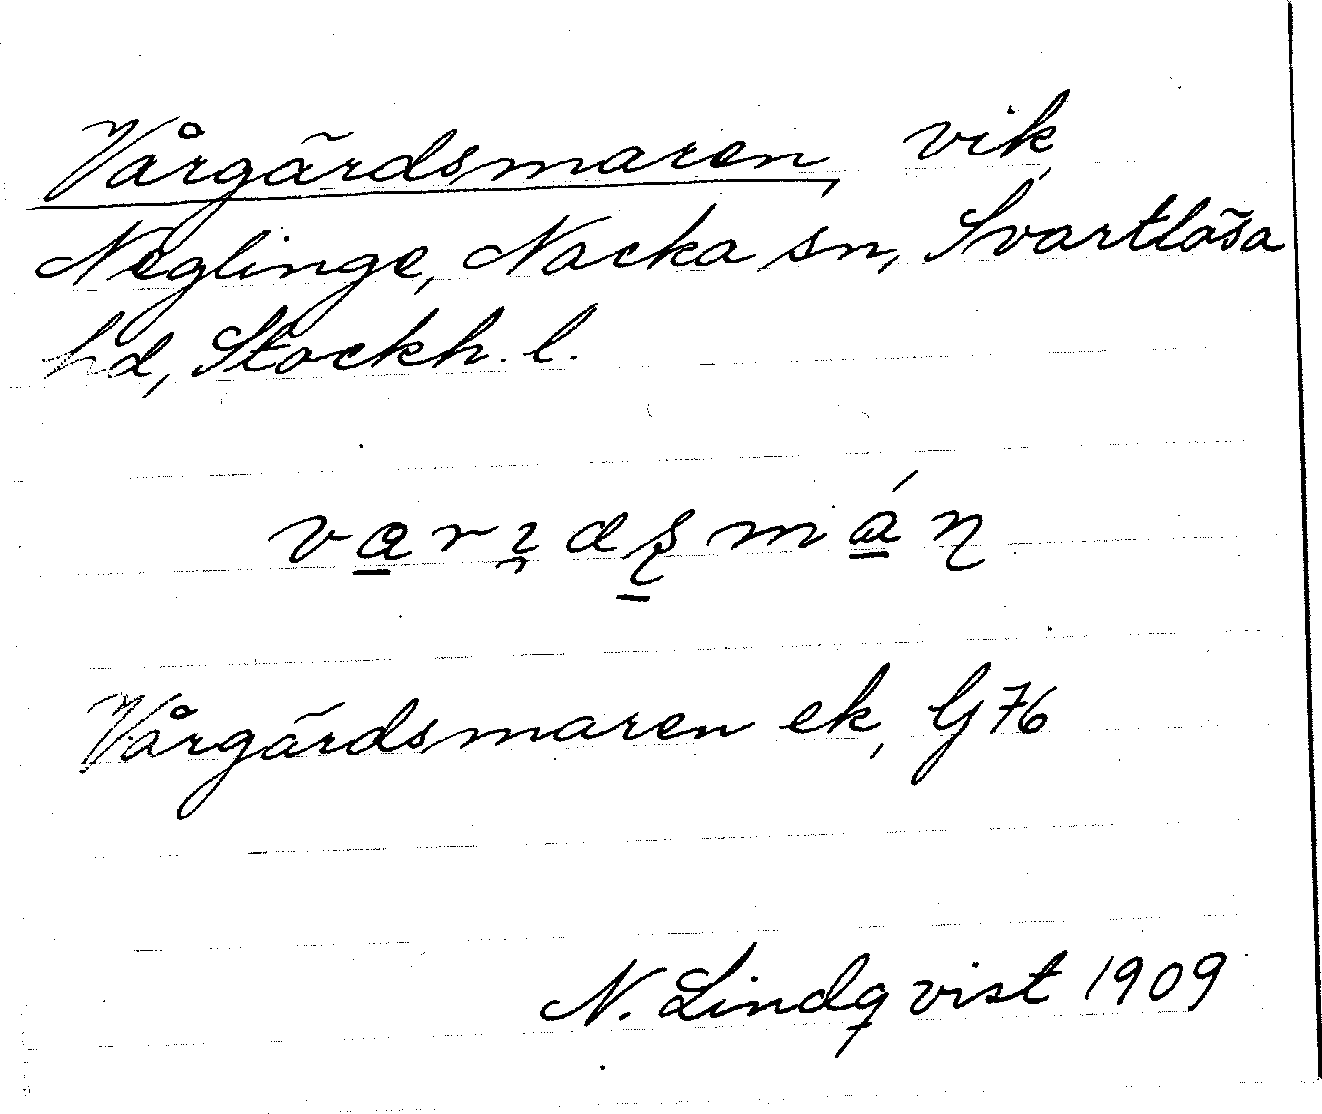 Vårgärdsmaren, vik
Neglinge, Nacka sn, Svartlösa
hd, Stockh. l.
Vårgärdsmaren ek, G 76
N. Lindqvist 1909